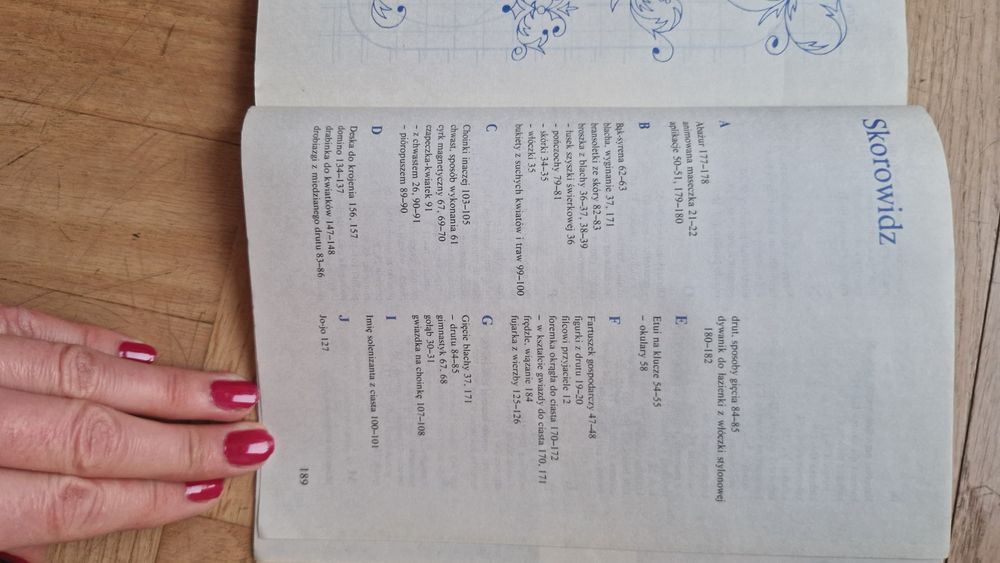 Skorowidz
A
Abażur 177–178
animowana maseczka 21–22
aplikacje 50–51, 179–180
B
Bąk-syrena 62–63
blacha, wyginanie 37, 171
bransoletki ze skóry 82–83
broszka z blachy 36–37, 38–39
– łusek szyszki świerkowej 36
– pończochy 79–81
– skórki 34–35
– włóczki 35
bukiety z suchych kwiatów i traw 99–100
C
Choinki inaczej 103–105
chwast, sposób wykonania 61
cyrk magnetyczny 67, 69–70
czapeczka-kwiatek 91
– z chwastem 26, 90–91
– pióropuszem 89–90
D
Deska do krojenia 156, 157
domino 134–137
drabinka do kwiatków 147–148
drobiazgi z miedzianego drutu 83–86
drut, sposoby gięcia 84–85
dywanik do łazienki z włóczki stylonowej
180–182
E
Etui na klucze 54–55
– okulary 58
F
Fartuszek gospodarczy 47–48
figurki z drutu 19–20
filcowi przyjaciele 12
foremka okrągła do ciasta 170–172
– w kształcie gwiazdy do ciasta 170, 171
frędzle, wiązanie 184
fujarka z wierzby 125–126
G
Gięcie blachy 37, 171
– drutu 84–85
gimnastyk 67, 68
gołąb 30–31
gwiazdka na choinkę 107–108
I
Imię solenizanta z ciasta 100–101
J
Jo-jo 127
189